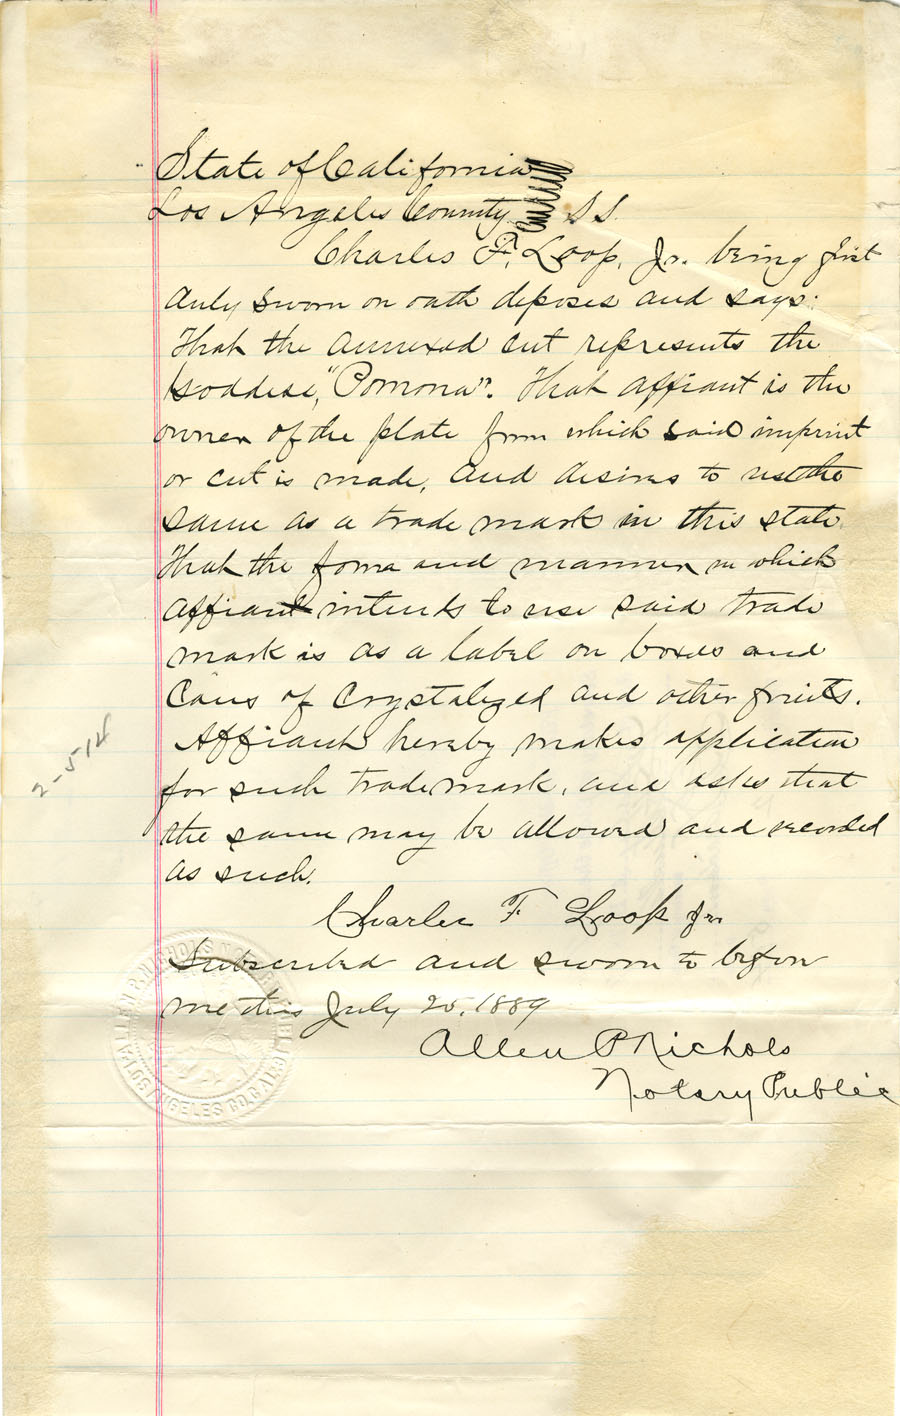 State of California
Los Angeles County S S
Charles F. Loop, Jr. being first
duly sworn on oath deposes and says:
That the annexed cut represents the
Goddess, "Pomona". That affiant is the
owner of the plate from which said imprint
or cut is made, and desires to use the
same as a trade mark in this state.
That the form and manner in which
affiant intends to use said trade
mark is as a label on boxes and
Cans of Crystalized and other fruits.
Affiant hereby makes application
for such trade mark, and asks that
the same may be allowed and recorded
as such.
Charles F Loop Jr
Subscribed and sworn to before
me this July 25, 1889
Allen P Nichols
Notary Public
2-514
ALLEN P. NICHOLS NOTARY PUBLIC
LOS ANGELES CO. CAL.